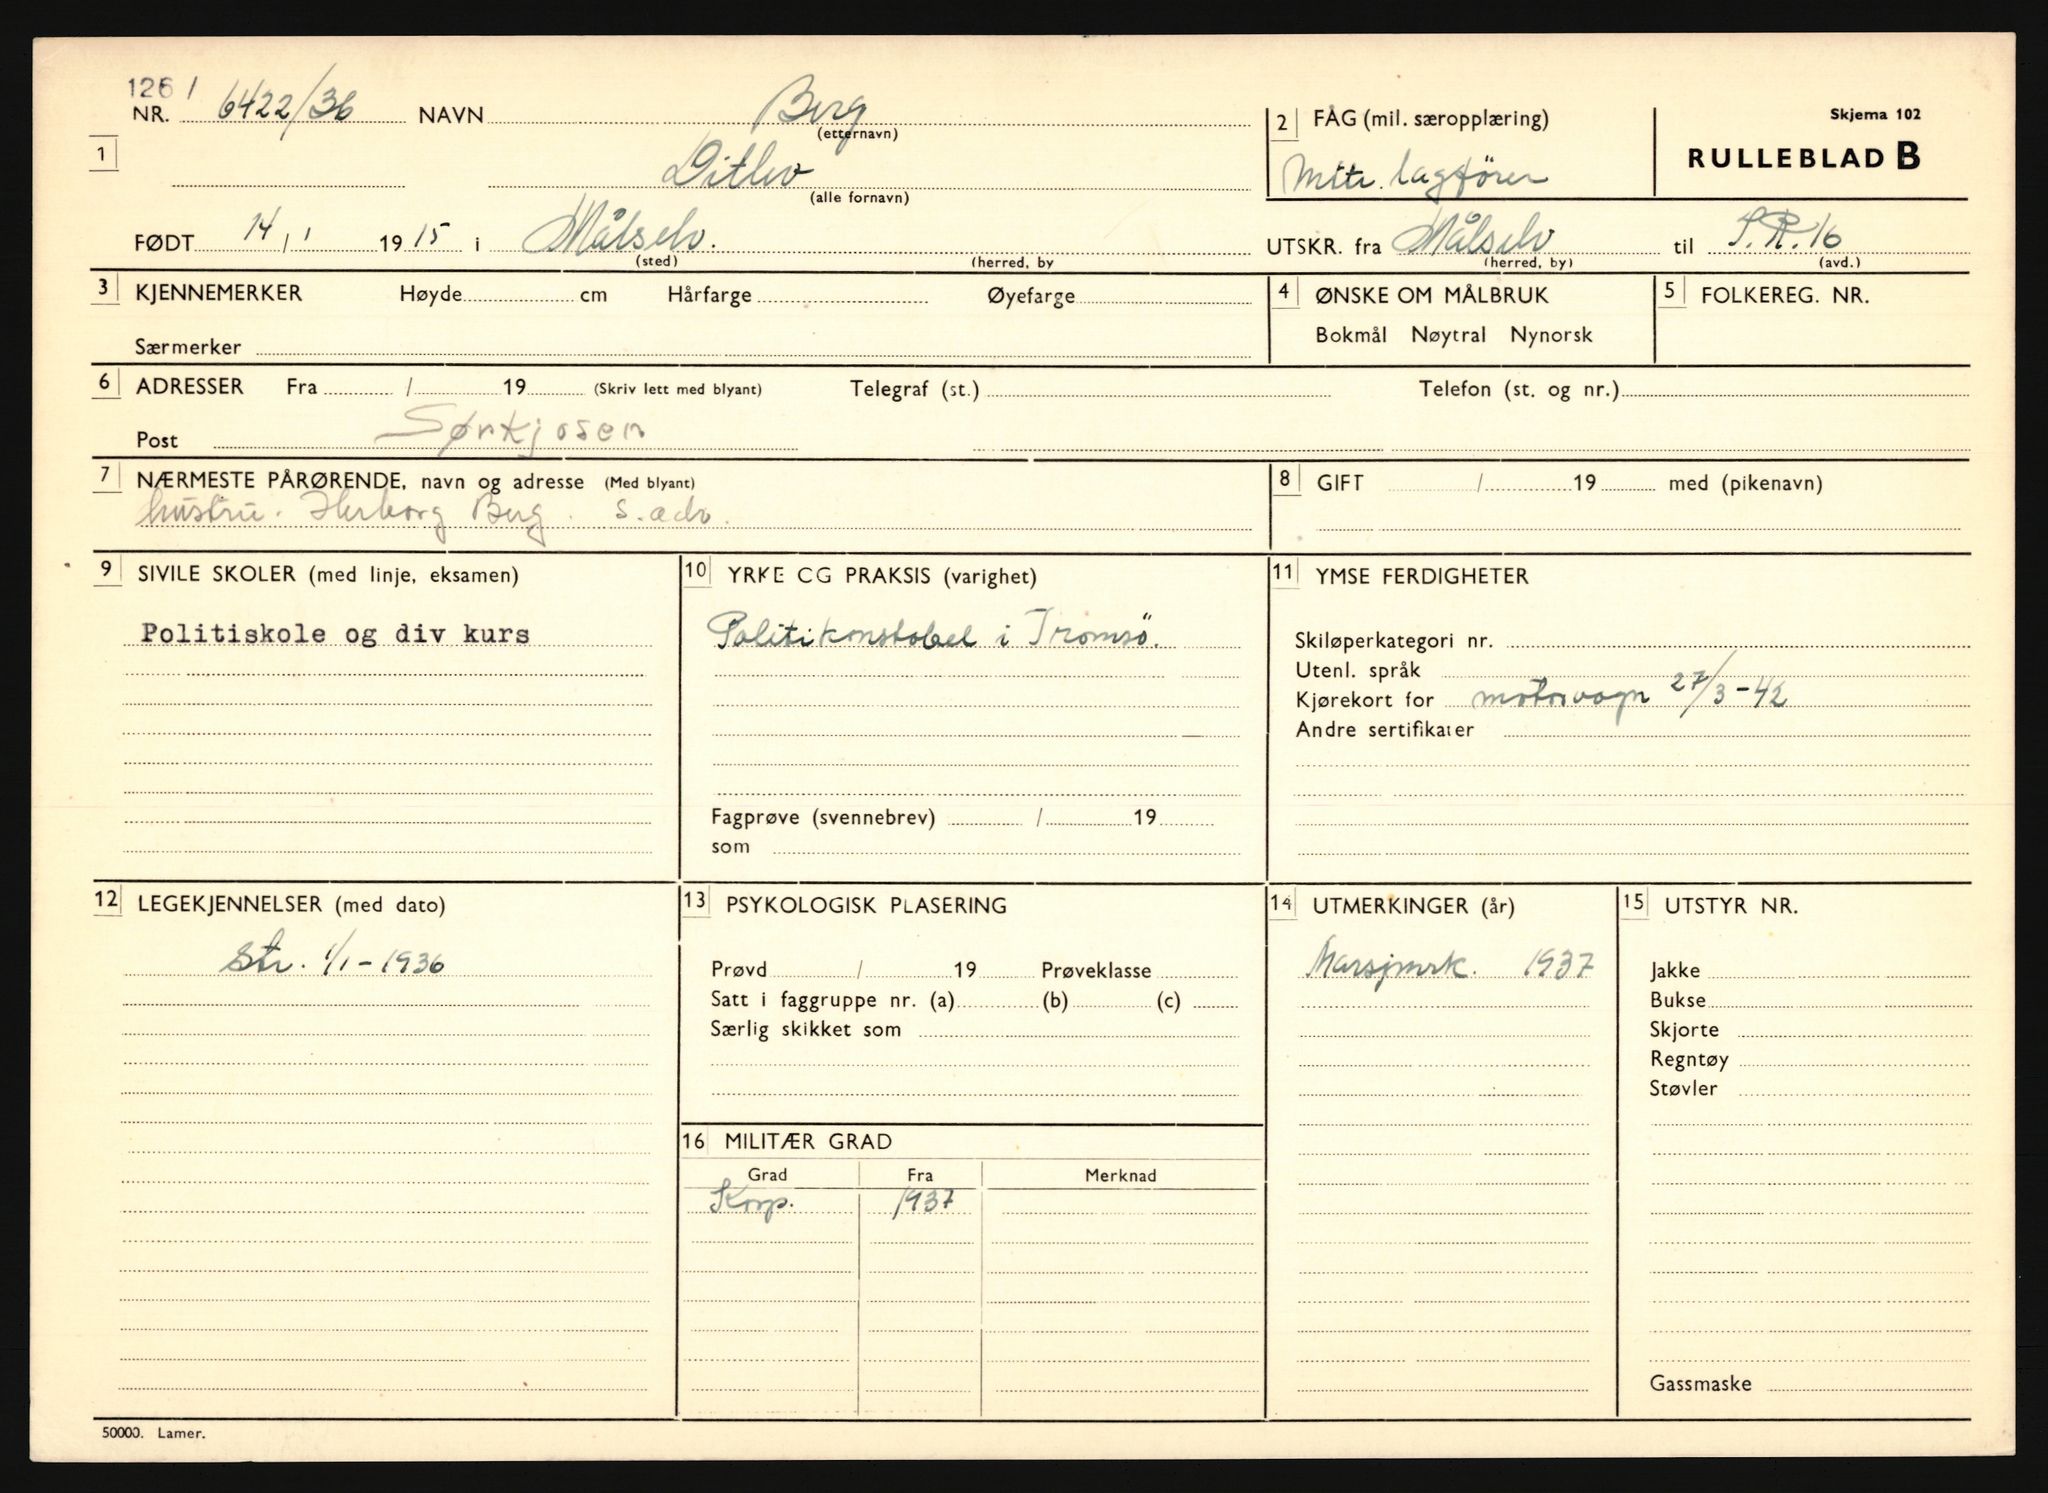 126 /
NR. 6422/36 NAVN Berg
(etternavn)
1
Ditlev
(alle fornavn)
FØDT 14 / 1 1915 i Målselv.
(sted) (herred, by
2 FAG (mil. særopplæring)
Mitr. lagfører
Skjema 102
RULLEBLAD B
UTSKR. fra Målselv til I.R. 16
(herred, by) (avd.)
3 KJENNEMERKER Høyde cm Hårfarge Øyefarge
Særmerker
4 ØNSKE OM MÅLBRUK
Bokmål Nøytral Nynorsk
5 FOLKEREG. NR.
6 ADRESSER Fra / 19 (Skriv lett med blyant) Telegraf (st.) Telefon (st. og nr.)
Post Sørkjosen
7 NÆRMESTE PÅRØRENDE, navn og adresse (Med blyant)
hustru. Herborg Berg. s. adr.
8 GIFT / 19 med (pikenavn)
9 SIVILE SKOLER (med linje, eksamen)
Politiskole og div kurs
10 YRKE OG PRAKSIS (varighet)
Politikonstabel i Tromsö.
Fagprøve (svennebrev) / 19
som
11 YMSE FERDIGHETER
Skiløperkategori nr.
Utenl. språk
Kjørekort for motorvogn 27/3-42
Andre sertifikater
12 LEGEKJENNELSER (med dato)
Str. 1/1-1936
13 PSYKOLOGISK PLASERING
Prøvd / 19 Prøveklasse
Satt i faggruppe nr. (a) (b) (c)
Særlig skikket som
14 UTMERKINGER (år)
Marsjmrk. 1937
15 UTSTYR NR.
Jakke
Bukse
Skjorte
Regntøy
Støvler
Gassmaske
16 MILITÆR GRAD
Grad Fra Merknad
Korp. 1937
50000. Lamer.